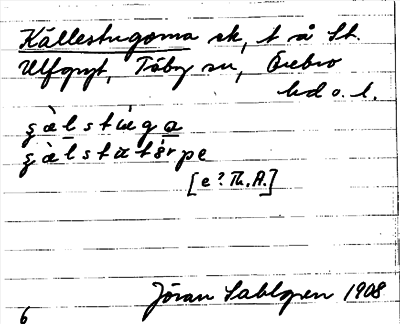 Källestugorna sk, t å St.
Ulfgryt, Täby sn, Örebro
hd o. l.
ʂälstúga
ʂälstatórpe
[e? Th. A.]
Jöran Sahlgren 1908
6